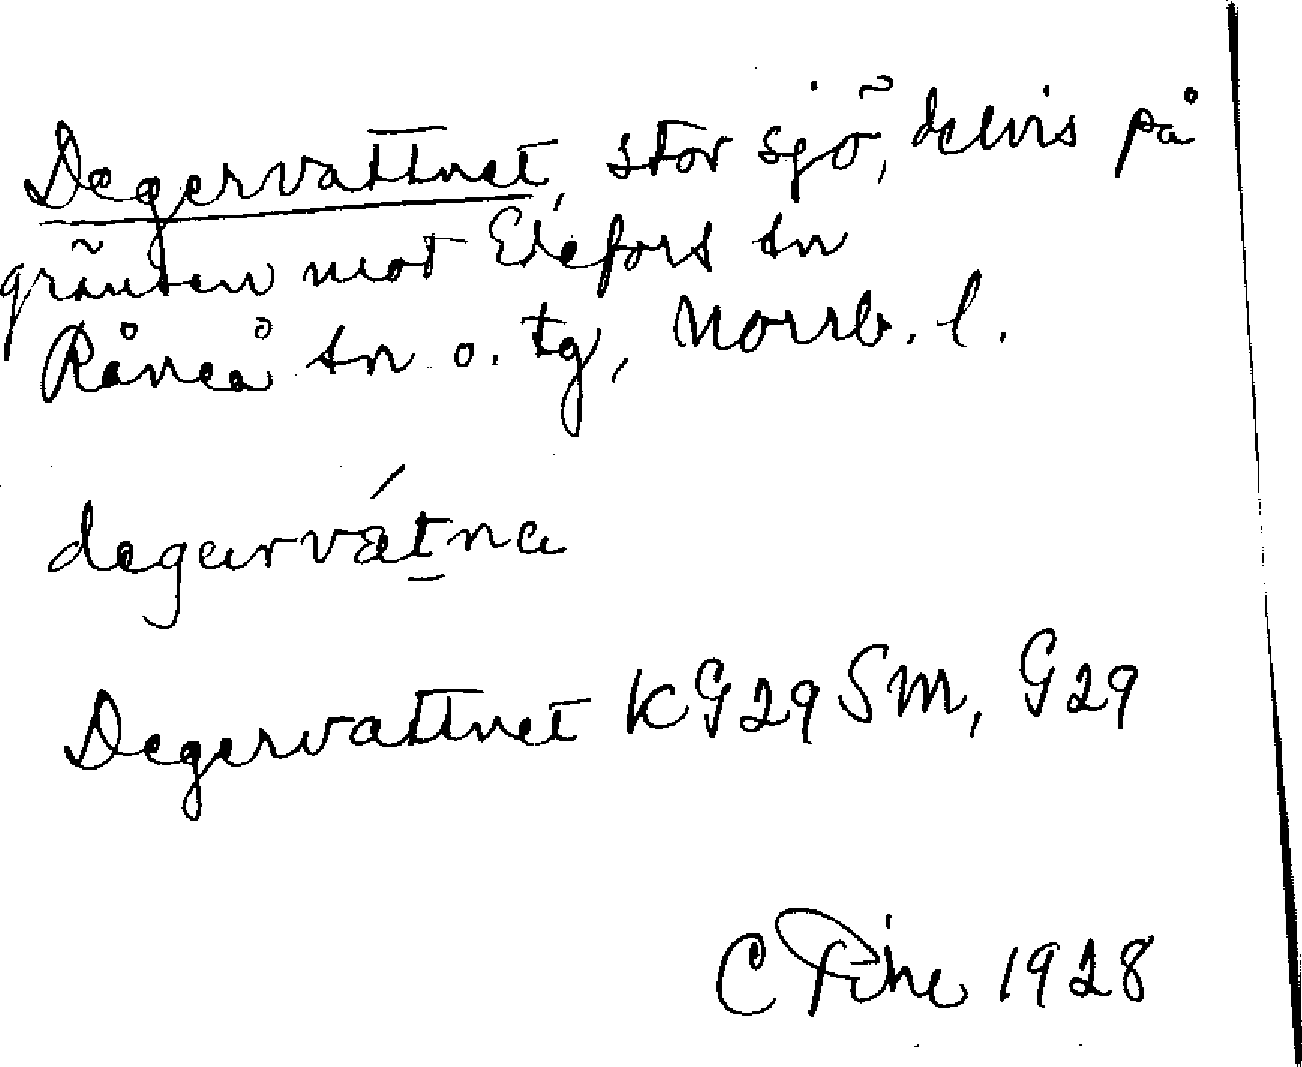 Degervattnet, stor sjö, delvis på
gränsen mot Edefors sn
Råneå sn o. tg, Norrb. l.
degərvát̲nɑ
Degervattnet KG29SM, G29
C Fihe 1928